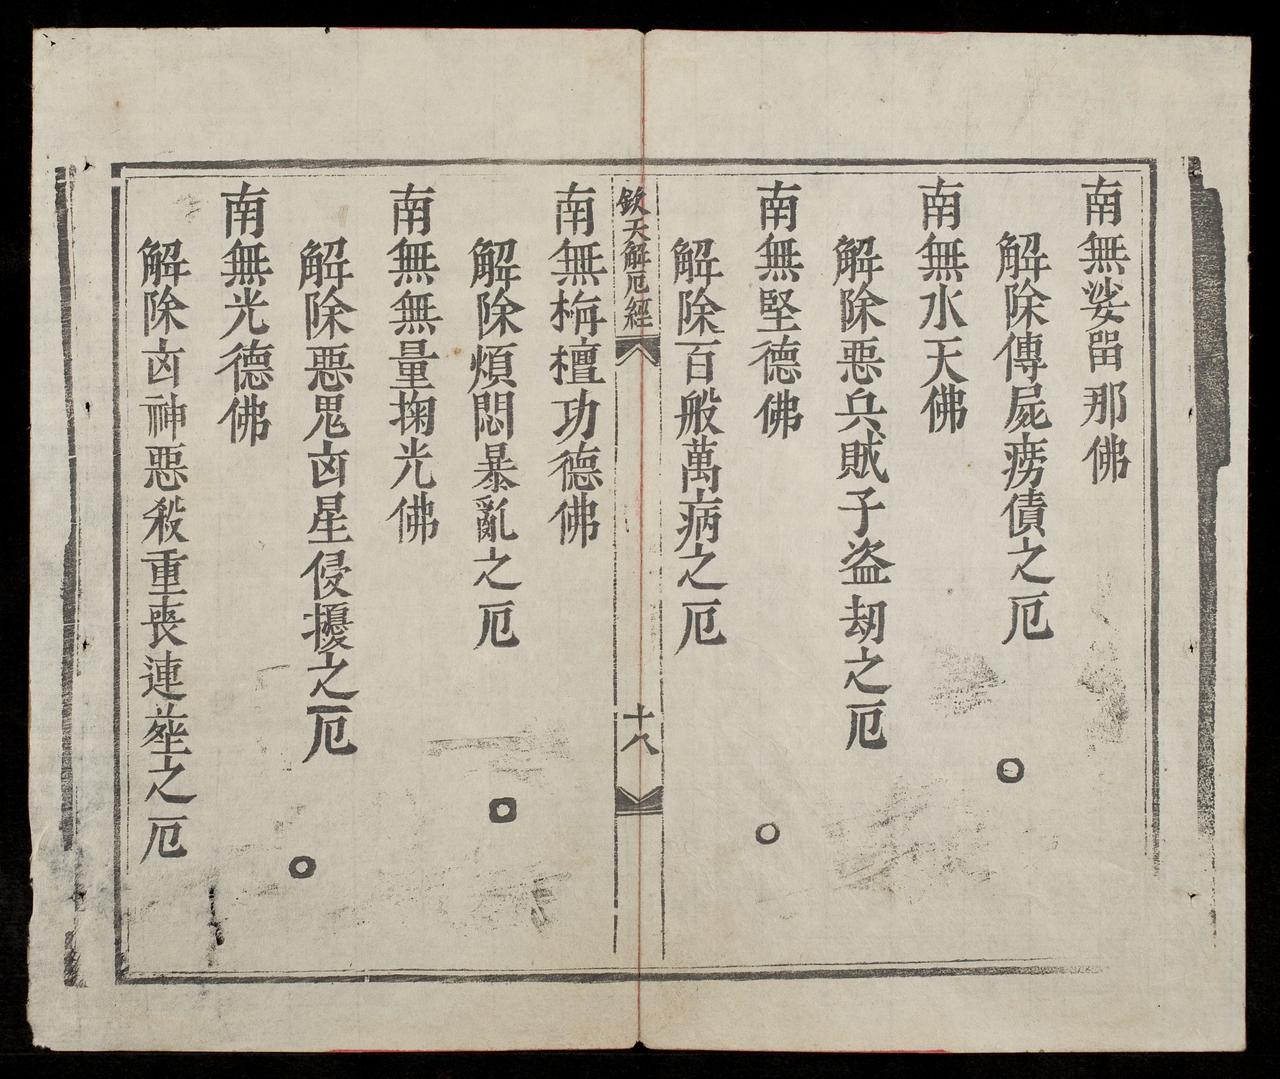 南無娑畱那佛
解除傳屍癆債之厄
南無水天佛
解除惡兵賊子盜劫之厄
南無堅德佛
解除百般萬病之厄
欽天解厄經
十八
南無栴檀功德佛
解除煩悶暴亂之厄
南無無量掬光佛
解除惡鬼凶星侵擾之厄
南無光德佛
解除凶神惡殺重喪連塟之厄